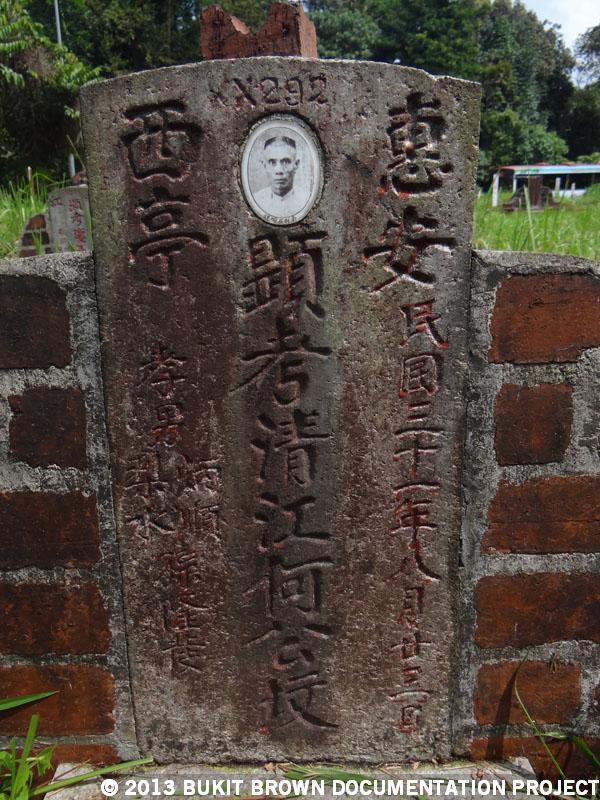 XX292
惠安
民國三十一年八月廿三日
顯考清江何公墳
西亭
孝男
炳順
梨水
孫
© 2013 BUKIT BROWN DOCUMENTATION PROJECT